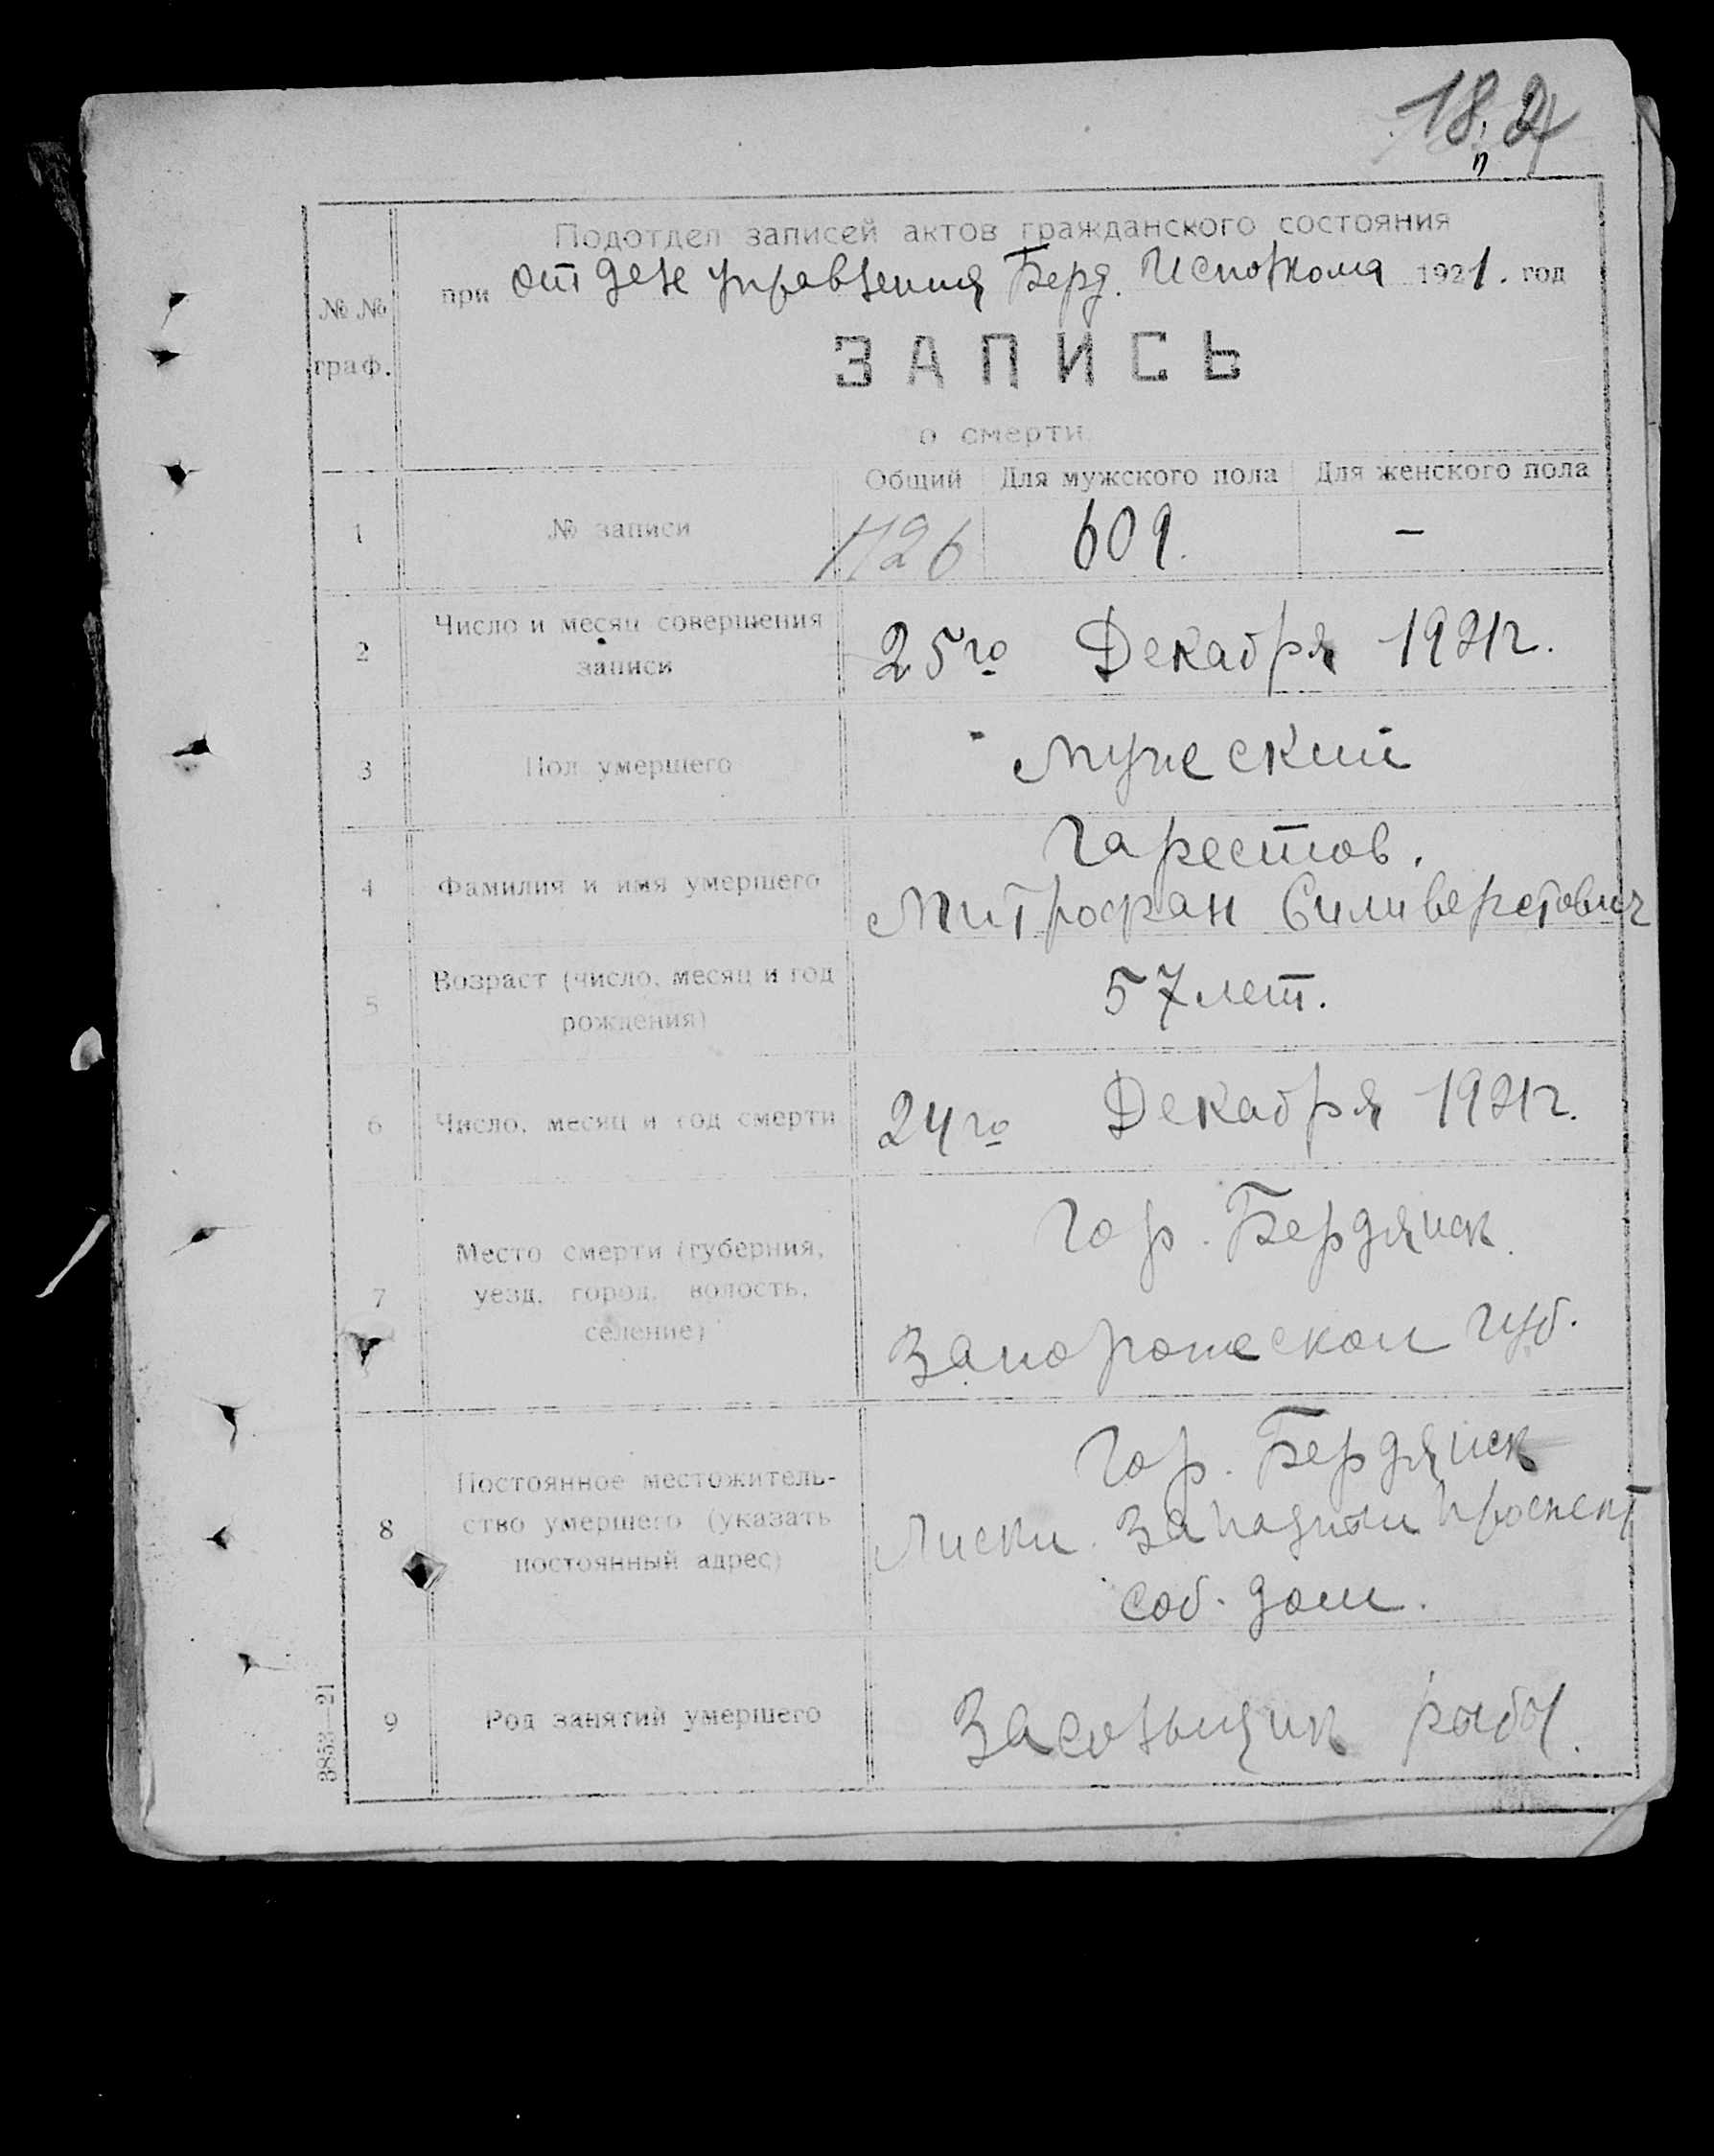 Подотдел записей актов гражданского состояния
при отделе управления Берд. Исполкома 1921. год
№ № граф.
ЗАПИСЬ
о смерти.
Общий Для мужского пола Для женского пола
1 № записи 1726 609. –
2 Число и месяц совершения
записи
25го Декабря 1921г.
3 Пол умершего Мужеский
4 Фамилия и имя умершего
Гарестов.
Митрофан Силиверстович
5 Возраст (число, месяц и год
рождения)
57 лет.
6 Число, месяц и год смерти 24го Декабря 1921г.
7 Место смерти (губерния,
уезд, город, волость,
селение)
Гор. Бердянск.
Запорожеской Губ.
8 Постоянное местожитель-
ство умершего (указать
постоянный адрес)
Гор. Бердянск
Лиски. Западный проспект
соб. дом.
9 Род занятий умершего Засольщик рыбы.
3853—21